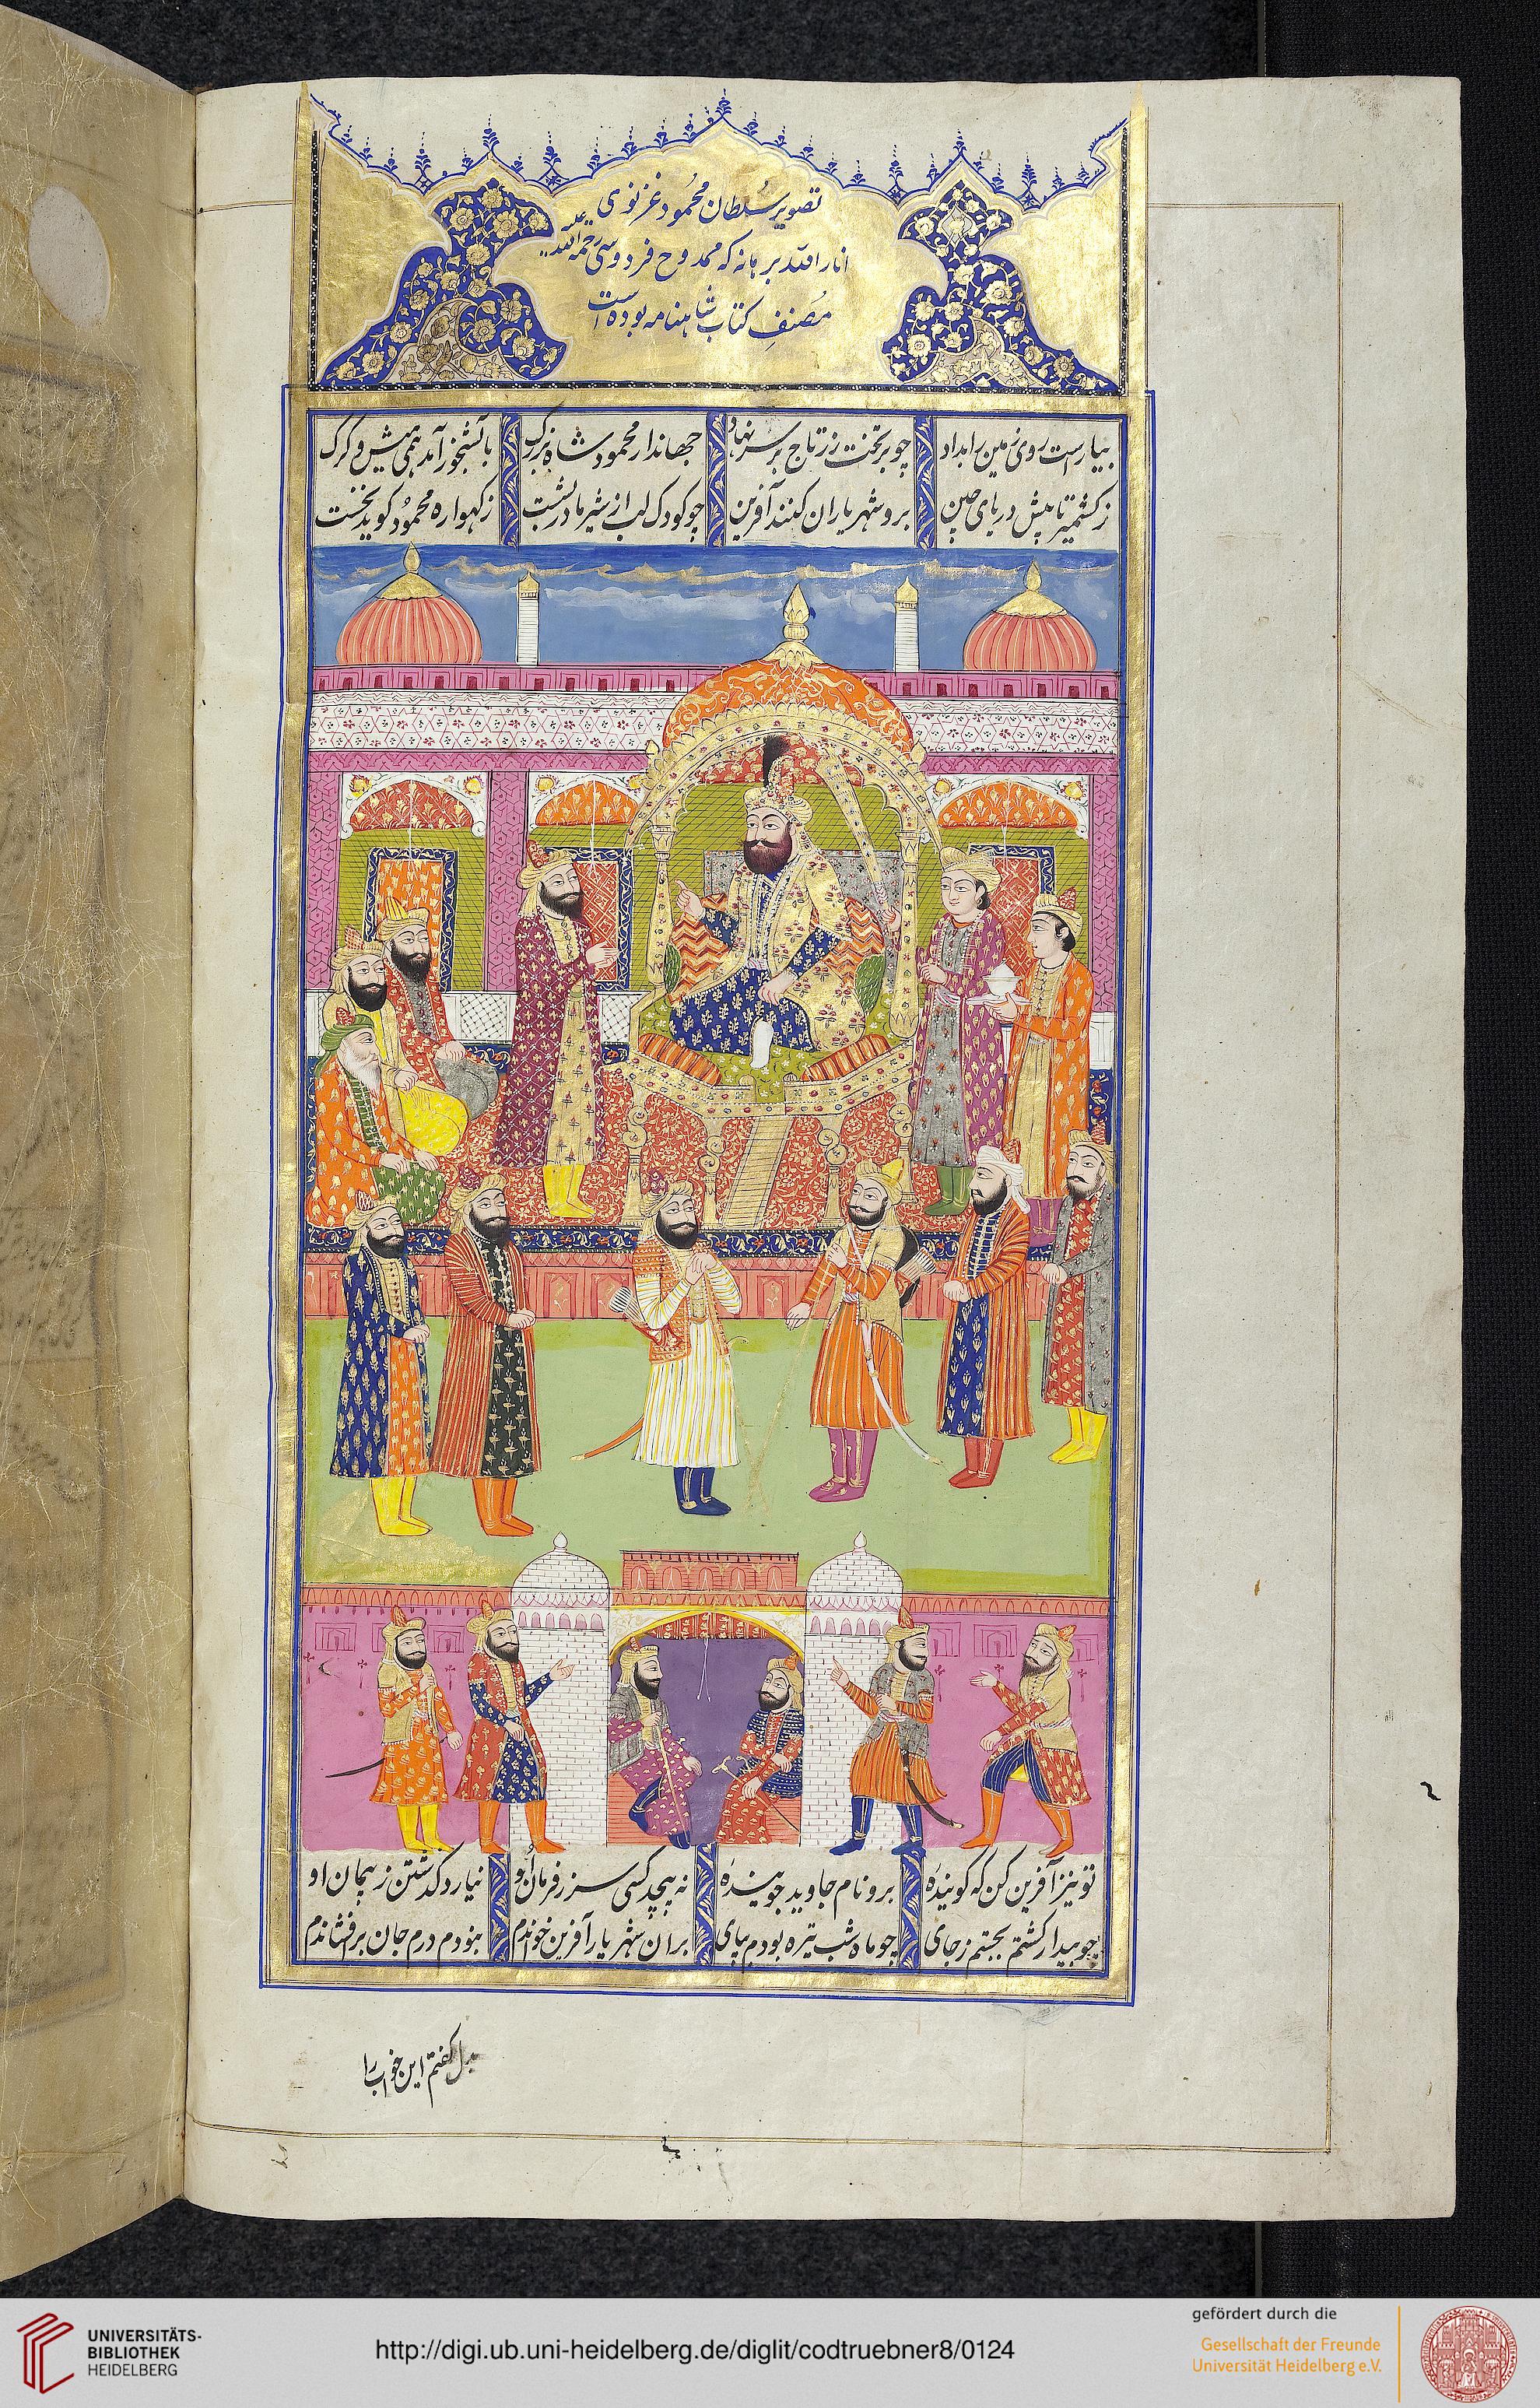 تصویر سُلطان محمُود غزنوی
انار الله برهانه که ممدوح فردوسی رحمة الله علیه
مُصنفِ کتاب شاهنامه بوده است
بیاراست روی زمین را بداد چو بر تخت زر تاج بر سر نهاد جهاندار محمود شاه بزرک بآبشخور آمد همی میش و کرک
ز کشمیر تا پیش دریای چین برو شهریاران کنند آفرین چو کودک لب از شیر مادر بشست ز کهواره محمُود کوید نخست
تو نیز آفرین کن که کوینده برو نام جاوید جوینده نه پیچد کسی سر ز فرمان او نیارد کذشتن ز پیمان او
چو بیدار کشتم بجستم ز جای چو ماه شب تیره بودم بپای بران شهریار آفرین خواندم نبودم درم جان برافشاندم
بدل کفتم این خواب را
UNIVERSITÄTS-
BIBLIOTHEK
HEIDELBERG
http://digi.ub.uni-heidelberg.de/diglit/codtruebner8/0124
gefördert durch die
Gesellschaft der Freunde
Universität Heidelberg e.V.